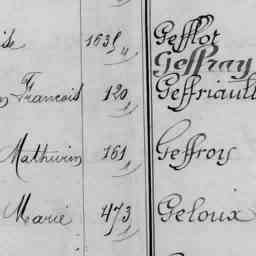 163 Gefflot
Geffray
François 120 Geffriault
Mathurin 161 Geffroy
Marie 473 Geloux